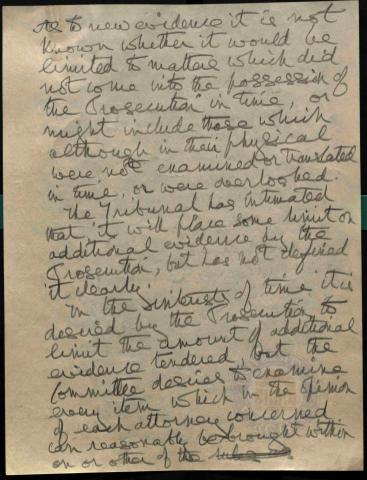 As to new evidence it is not
known whether it would be
limited to matters which did
not come into the possession of
the Prosecution in time, or
might include those which
although in their physical
were not examined or translated
in time, or were overlooked.
The Tribunal has intimated
that it will place some limit on
additional evidence by the
Prosecution, but has not defined
it clearly.
In the interests of time it is
desired by the Prosecution to
limit the amount of additional
evidence tendered, but the
Committee desires to examine
every item which in the opinion
of each attorney concerned
can reasonably be brought within
on or other of the